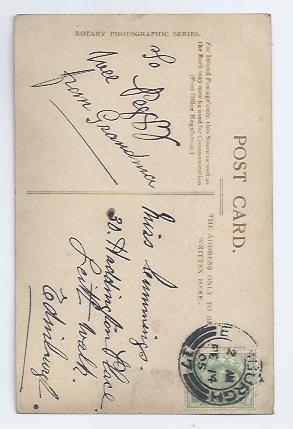 ROTARY PHOTOGRAPHIC SERIES.
POST CARD.
For Inland Postage only, this Space as well as
the Back may now be used for Communication
(Post Office Regulation.)
THE ADDRESS ONLY TO BE
WRITTEN HERE.
To
Wee Peggy
from Grandma
Miss Cummings.
30 Haddington Place
Leith Walk.
Edinburgh.
BURGH
FE 4
05